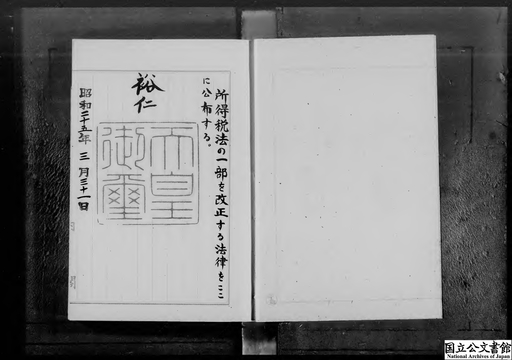 所得税法の一部を改正する法律をここ
に公布する。
裕仁
天皇
御璽
昭和二十五年三月三十一日
国立公文書館
National Archives of Japan